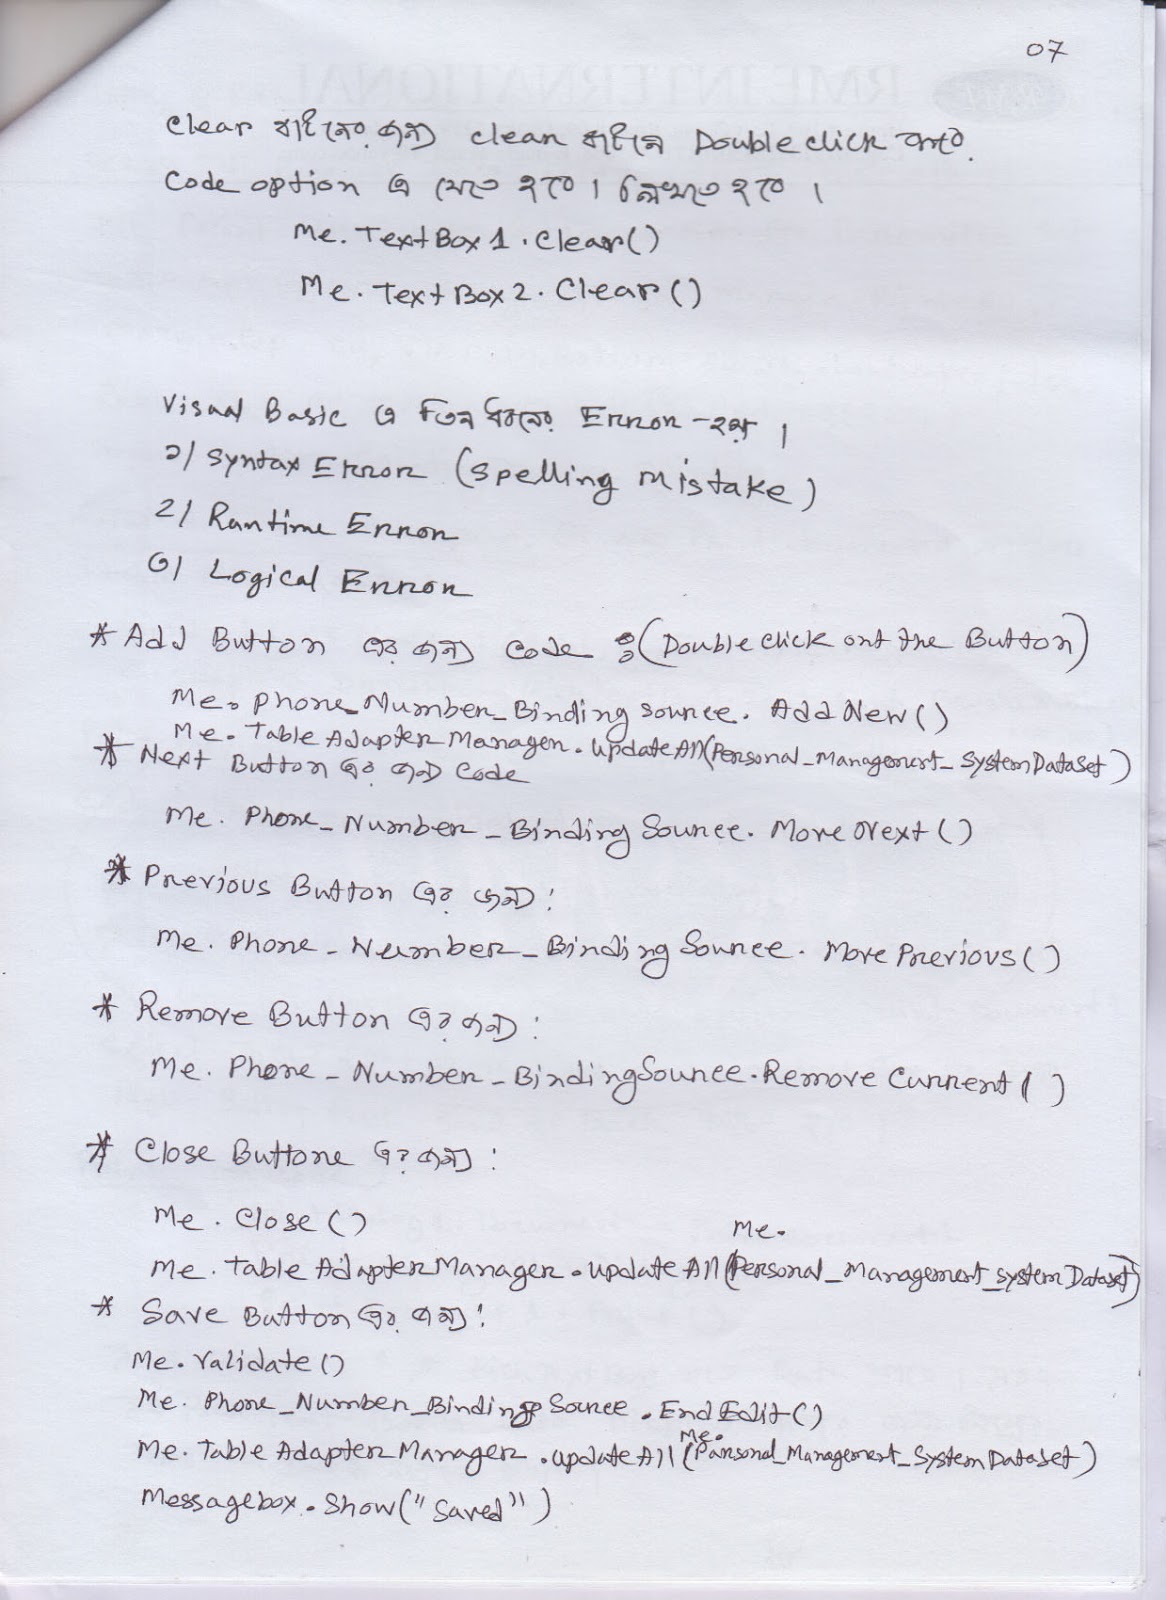 07
Clear বাটনের জন্য clear বাটনে Double click করে
Code option এ যেতে হবে। লিখতে হবে।
Me. TextBox1.Clear()
Me. TextBox2.Clear()
Visual Basic এ তিন ধরনের Error হয়।
১/ Syntax Error (Spelling mistake)
২/ Runtime Error
৩/ Logical Error
* Add Button এর জন্য Code : (Double click ont the Button)
Me. Phone_Number_Binding source. Add New()
Me. Table Adapter Manager. update All(Personal_Management_System Dataset)
* Next Button এর জন্য Code
Me. Phone_Number_Binding Source. Move Next()
* Previous Button এর জন্য:
Me. Phone_Number_Binding Source. Move Previous()
* Remove Button এর জন্য:
Me. Phone_Number_BindingSource. Remove Current( )
* Close Buttone এর জন্য:
Me. Close()
Me. Table Adapter Manager. update All(Me. Personal_Management_system Dataset)
* Save Button এর জন্য:
Me. Validate()
Me. Phone_Number_Binding Source. End Edit()
Me. Table Adapter Manager. update All(Me. Parsonal_Management_System Dataset)
Messagebox. Show("Saved")